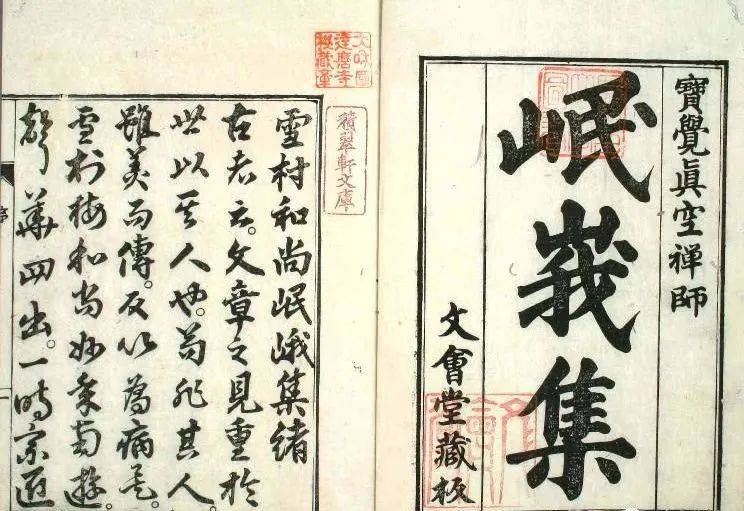 寶覺眞空禪師
岷峩集
文會堂藏板
積翠軒文庫
達磨寺
雪村和尚岷峨集緒
古者云。文章之見重於
世以其人也。苟非其人。
雖美而傳。反以爲病矣。
雪村梅和尚妙年南遊。
聲華四出。一時宗匠
序
一